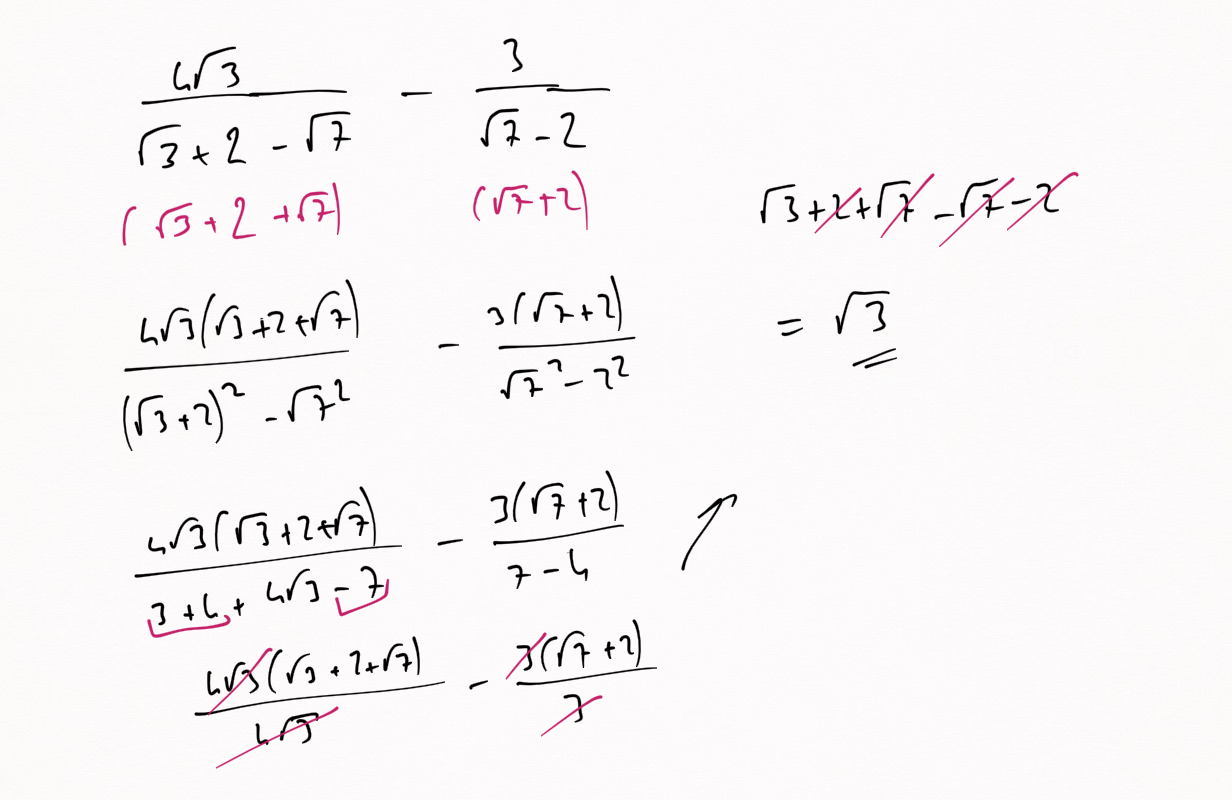 4√3 / (√3 + 2 - √7) - 3 / (√7 - 2)
(√3 + 2 + √7) (√7 + 2)
4√3(√3 + 2 + √7) / ((√3 + 2)² - √7²) - 3(√7 + 2) / (√7² - 2²)
4√3(√3 + 2 + √7) / (3 + 4 + 4√3 - 7) - 3(√7 + 2) / (7 - 4)
4√3(√3 + 2 + √7) / 4√3 - 3(√7 + 2) / 3
√3 + 2 + √7 - √7 - 2
= √3